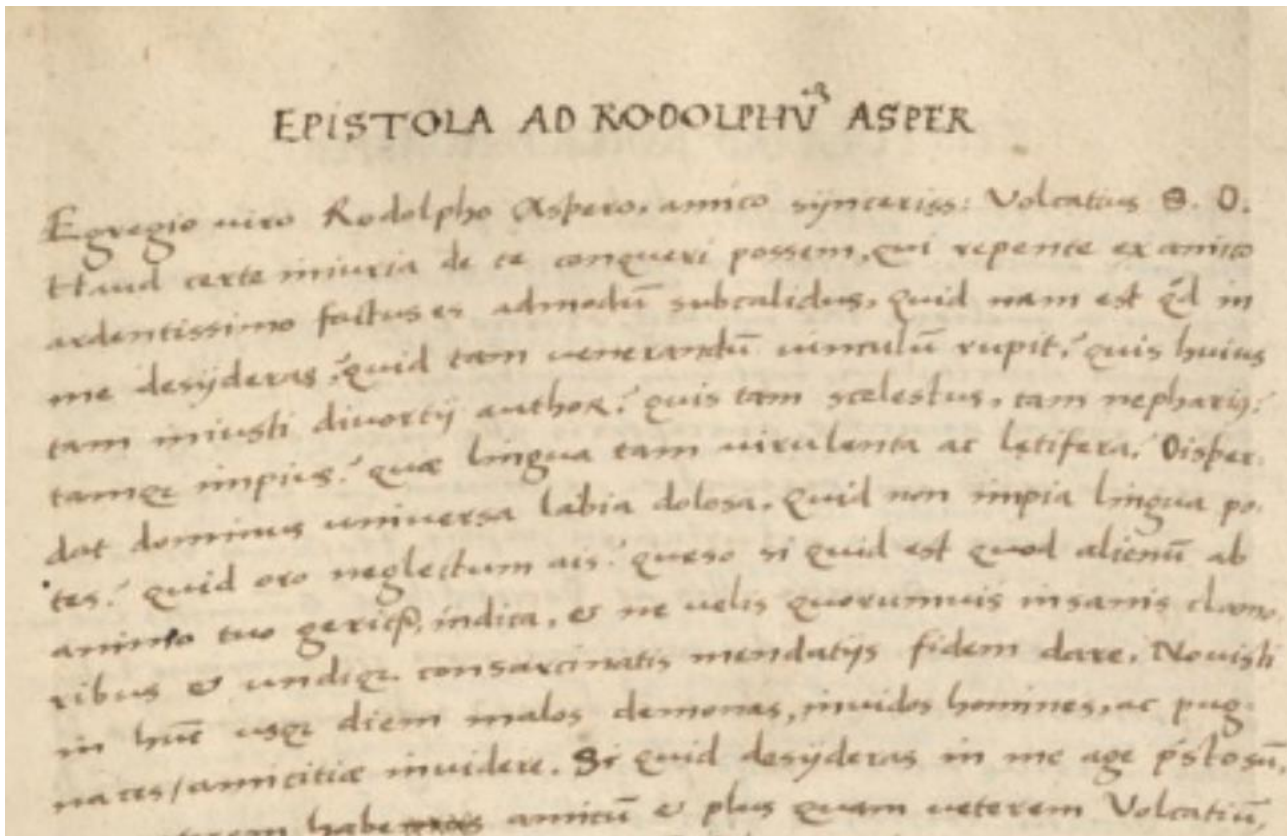 EPISTOLA AD RODOLPHŪ ASPER
Egregio uiro Rodolpho Aspero, amico synceriss: Volcatius S. D.
Haud certe iniuria de te conqueri possem, qui repente ex amico
ardentissimo factus es admodū subcalidus, quid nam est qd in
me desyderas? quid tam uenerandū uinculū rupit? quis huius
tam iniusti diuortij author? quis tam scelestus, tam nepharij:
tamqꝫ impius? quæ lingua tam uirulenta ac lętifera? Disper-
dat dominus uniuersa labia dolosa. Quid non impia lingua po-
tes? quid oro neglectum ais? queso si quid est quod alienū ab
animo tuo, indica, & ne uelis quorumuis insanis clamo
ribus & undiqꝫ consarcinatis mendatijs fidem dare. Nouisti
in hūc usqꝫ diem malos demonas, inuidos homines, ac pug-
naces/amicitiæ inuidere. Si quid desyderas in me age
habe amicū & plus quam ueterem Volcatiū,